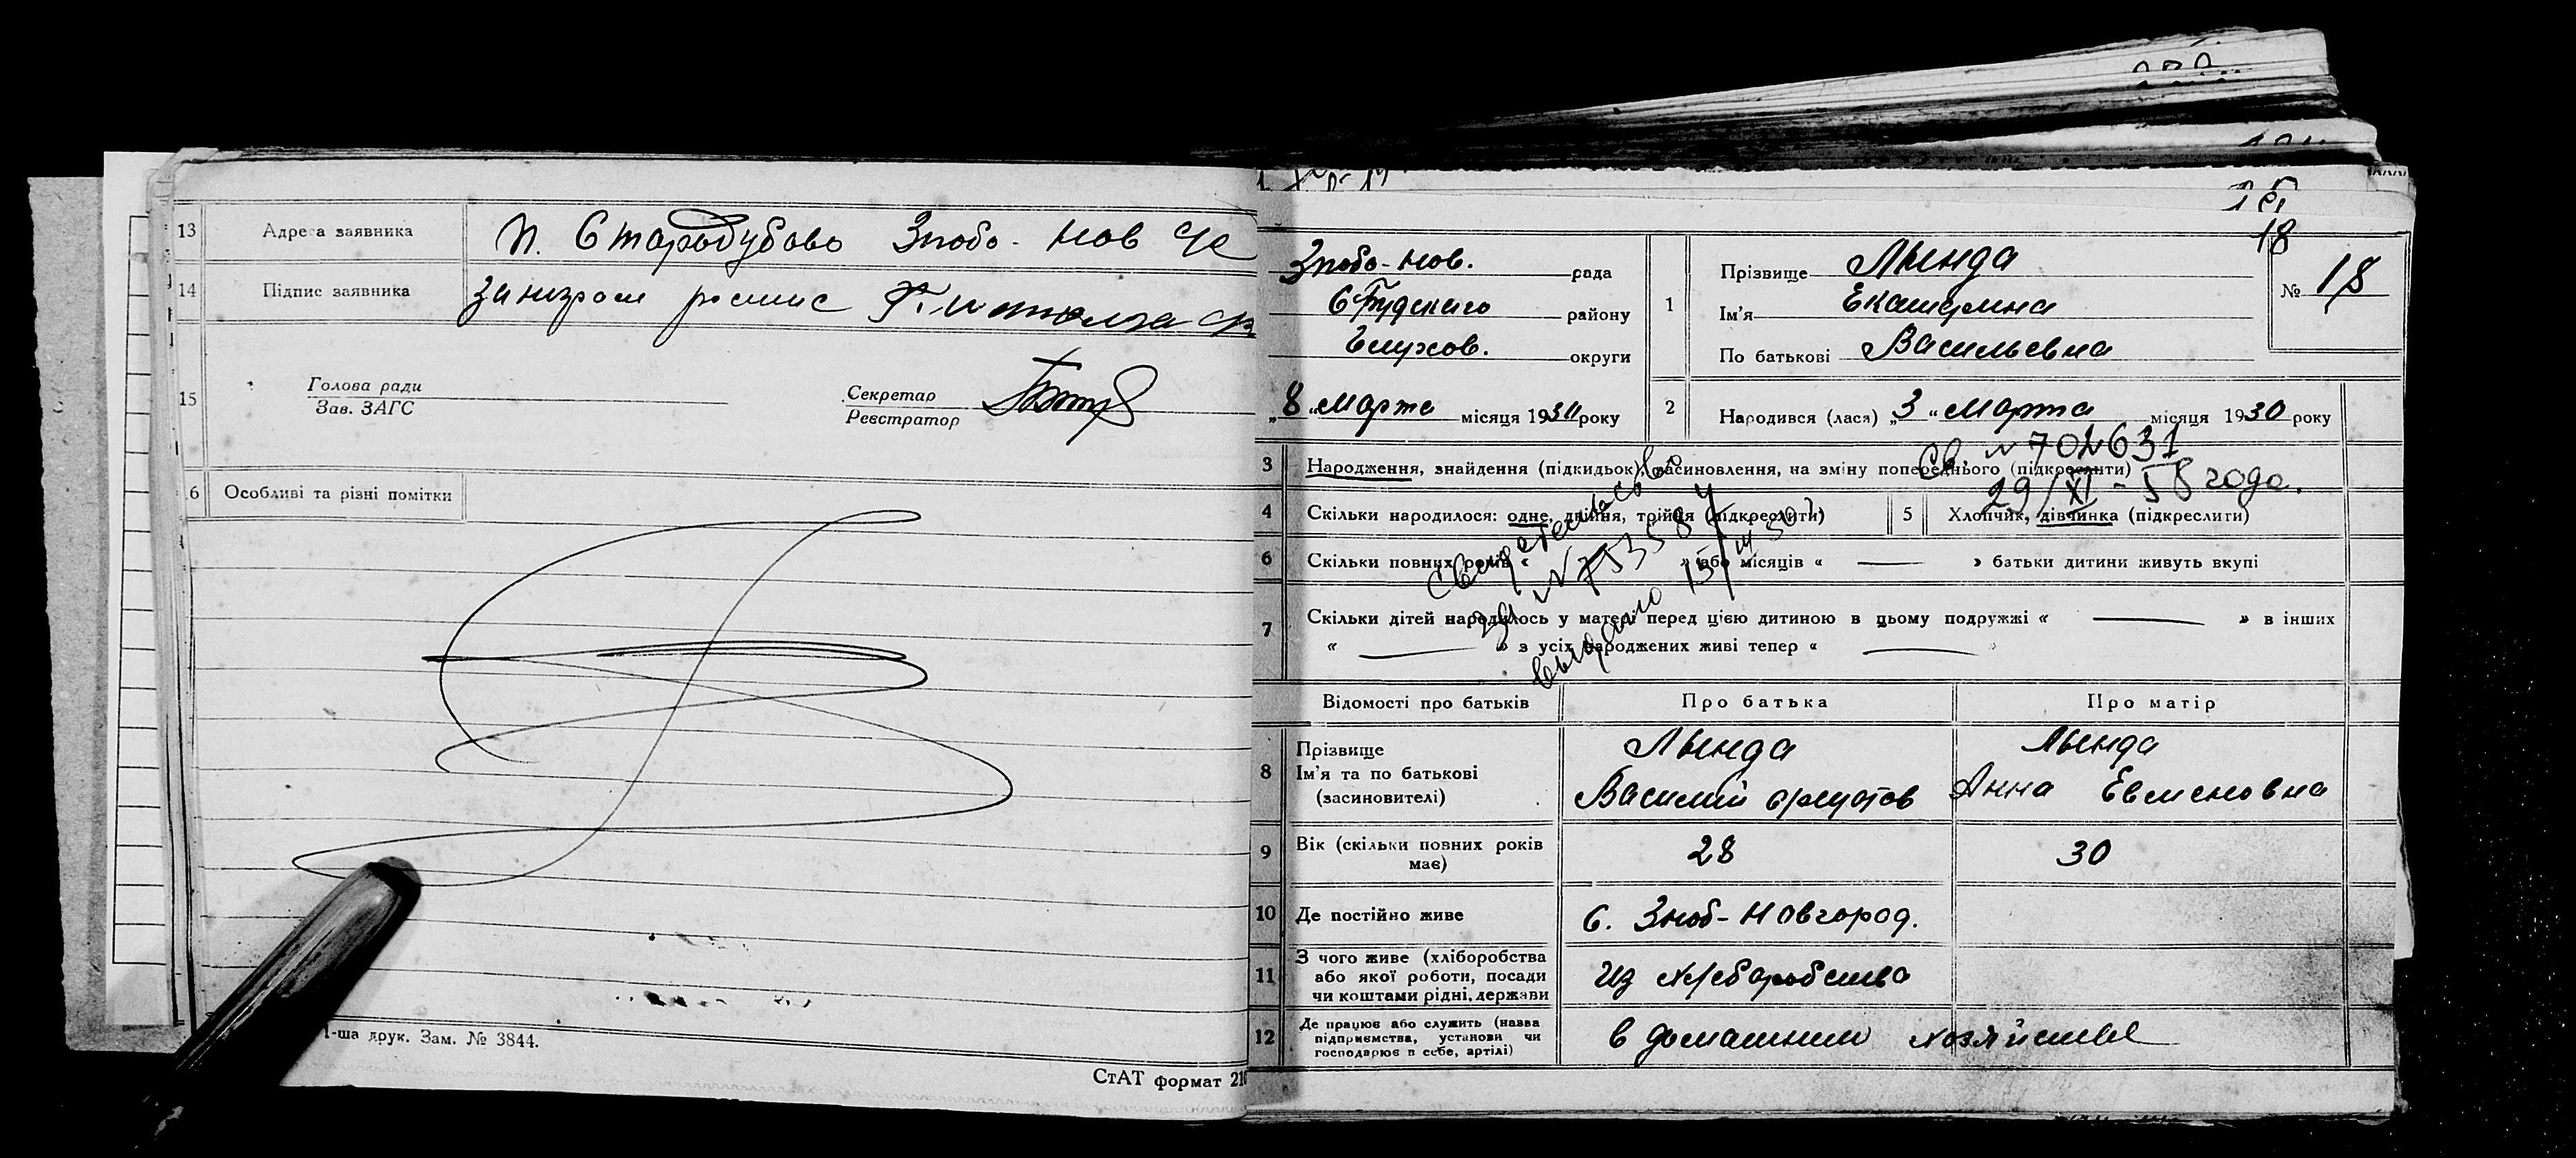 13 Адреса заявника п. Стародубово Знобо-Нов
14 Підпис заявника
15 Голова ради
Зав. ЗАГС
Секретар
Реєстратор
16 Особливі та різні помітки
1-ша друк. Зам. № 3844.
СтАТ формат 210
18
№ 18
Знобо-Нов. рада
района району
Глухов. округи
„8 “ Марта місяця 1930 року
1 Прізвище Лында
Ім'я Екатерина
По батькові Васильевна
2 Народився (лася) „3 “ Марта місяця 1930 року
Св. № 702631
29/XI - 58 года.
3 Народження, знайдення (підкидьок), засиновлення, на зміну попереднього (підкреслити)
4 Скільки народилося: одне, двійня, трійня (підкреслити)
5 Хлопчик, дівчинка (підкреслити)
6 Скільки повних років « » або місяців « — » батьки дитини живуть вкупі
7 Скільки дітей народилось у матері перед цією дитиною в цьому подружжі « — » в інших
« — » з усіх народжених живі тепер « — »
Свидетельство
за №
выдано
Відомості про батьків Про батька Про матір
8 Прізвище
Ім'я та по батькові
(засиновителі)
Лында
Василий
Лында
Анна Евменовна
9 Вік (скільки повних років
має)
28 30
10 Де постійно живе с. Зноб-Новгород.
11 З чого живе (хліборобства
або якої роботи, посади
чи коштами рідні, держави
из хлеборобства
12 Де працює або служить (назва
підприємства, установи чи
господарює в себе, артілі)
в домашнем хозяйстве